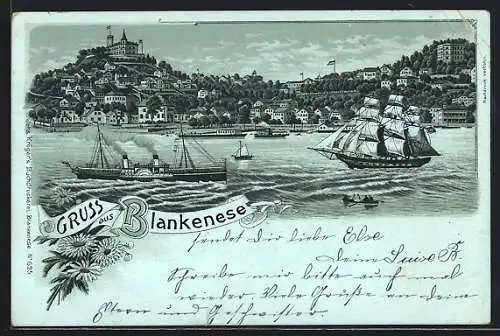 GRUSS aus Blankenese
sendet Dir liebe Else
deine Luise B.
Schreibe mir bitte auch mal
wieder. Viele Grüße an deine
Eltern und Geschwister.
Nachdruck verboten.
Blankenese. Nº 635